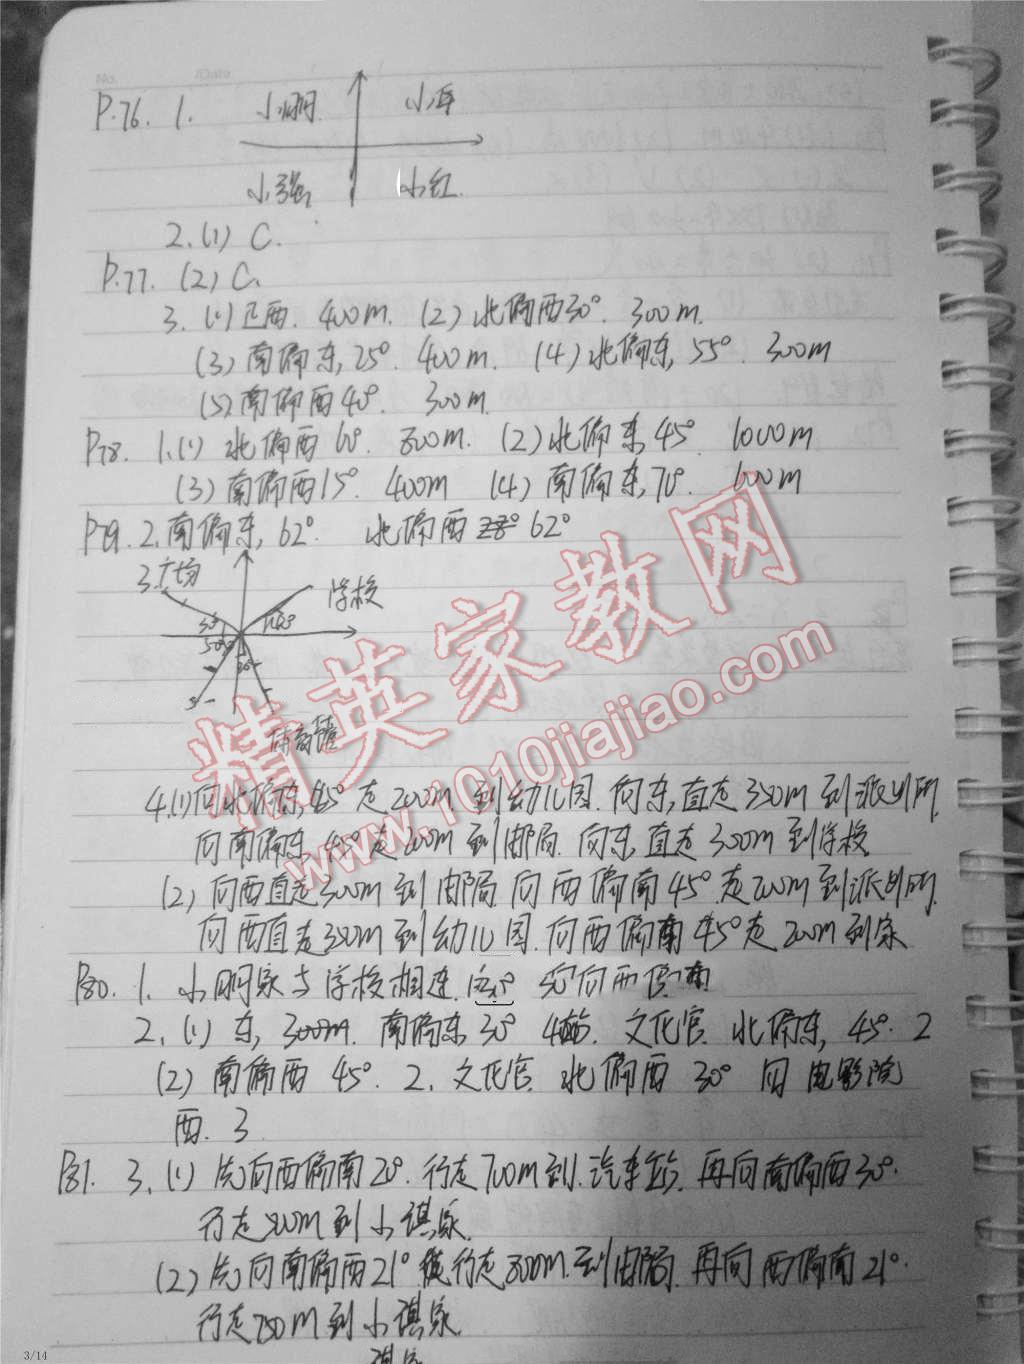 No.
Date
P.76. 1. 小明 小军
小强 小红
2.(1) C.
P.77. (2) C.
3. (1) 正西. 400m. (2) 北偏西30°. 300m.
(3) 南偏东, 25°. 400m. (4) 北偏东, 55°. 300m
(5) 南偏西40°. 300m.
P78. 1.(1) 北偏西60°. 800m. (2) 北偏东45°. 1000m
(3) 南偏西15°. 400m (4) 南偏东, 70°. 600m
P79. 2. 南偏东, 62°. 北偏西 62°
3. 广场 学校
体育馆
4.(1) 向北偏东, 45°走200m到幼儿园. 向东, 直走350m到派出所,
向南偏东, 45°走200m到邮局. 向东直走300m到学校
(2) 向西直走300m到邮局 向西偏南45°走200m到派出所,
向西直走350m到幼儿园. 向西偏南45°走200m到家
P80. 1. 小明家与学校相连, 向西偏南
2. (1) 东, 300m. 南偏东30° 4 文化宫. 北偏东, 45°. 2
(2) 南偏西45°. 2. 文化宫. 北偏西30° 向 电影院
西. 3
P81. 3. (1) 先向西偏南20°. 行走700m到汽车站. 再向南偏西30°.
行走800m到小谋家.
(2) 先向南偏西21° 行走800m到邮局. 再向西偏南21°.
行走750m到小谋家
精英家教网
www.1010jiajiao.com
3/14